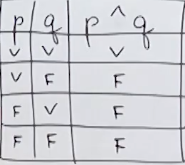 p q p ^ q
V V V
V F F
F V F
F F F